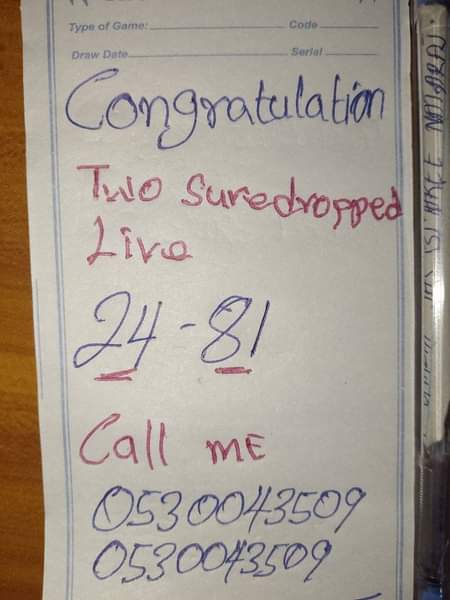 Type of Game:
Code
Draw Date
Serial
Congratulation
Two Suredropped
Live
24-81
Call ME
0530043509
0530043509